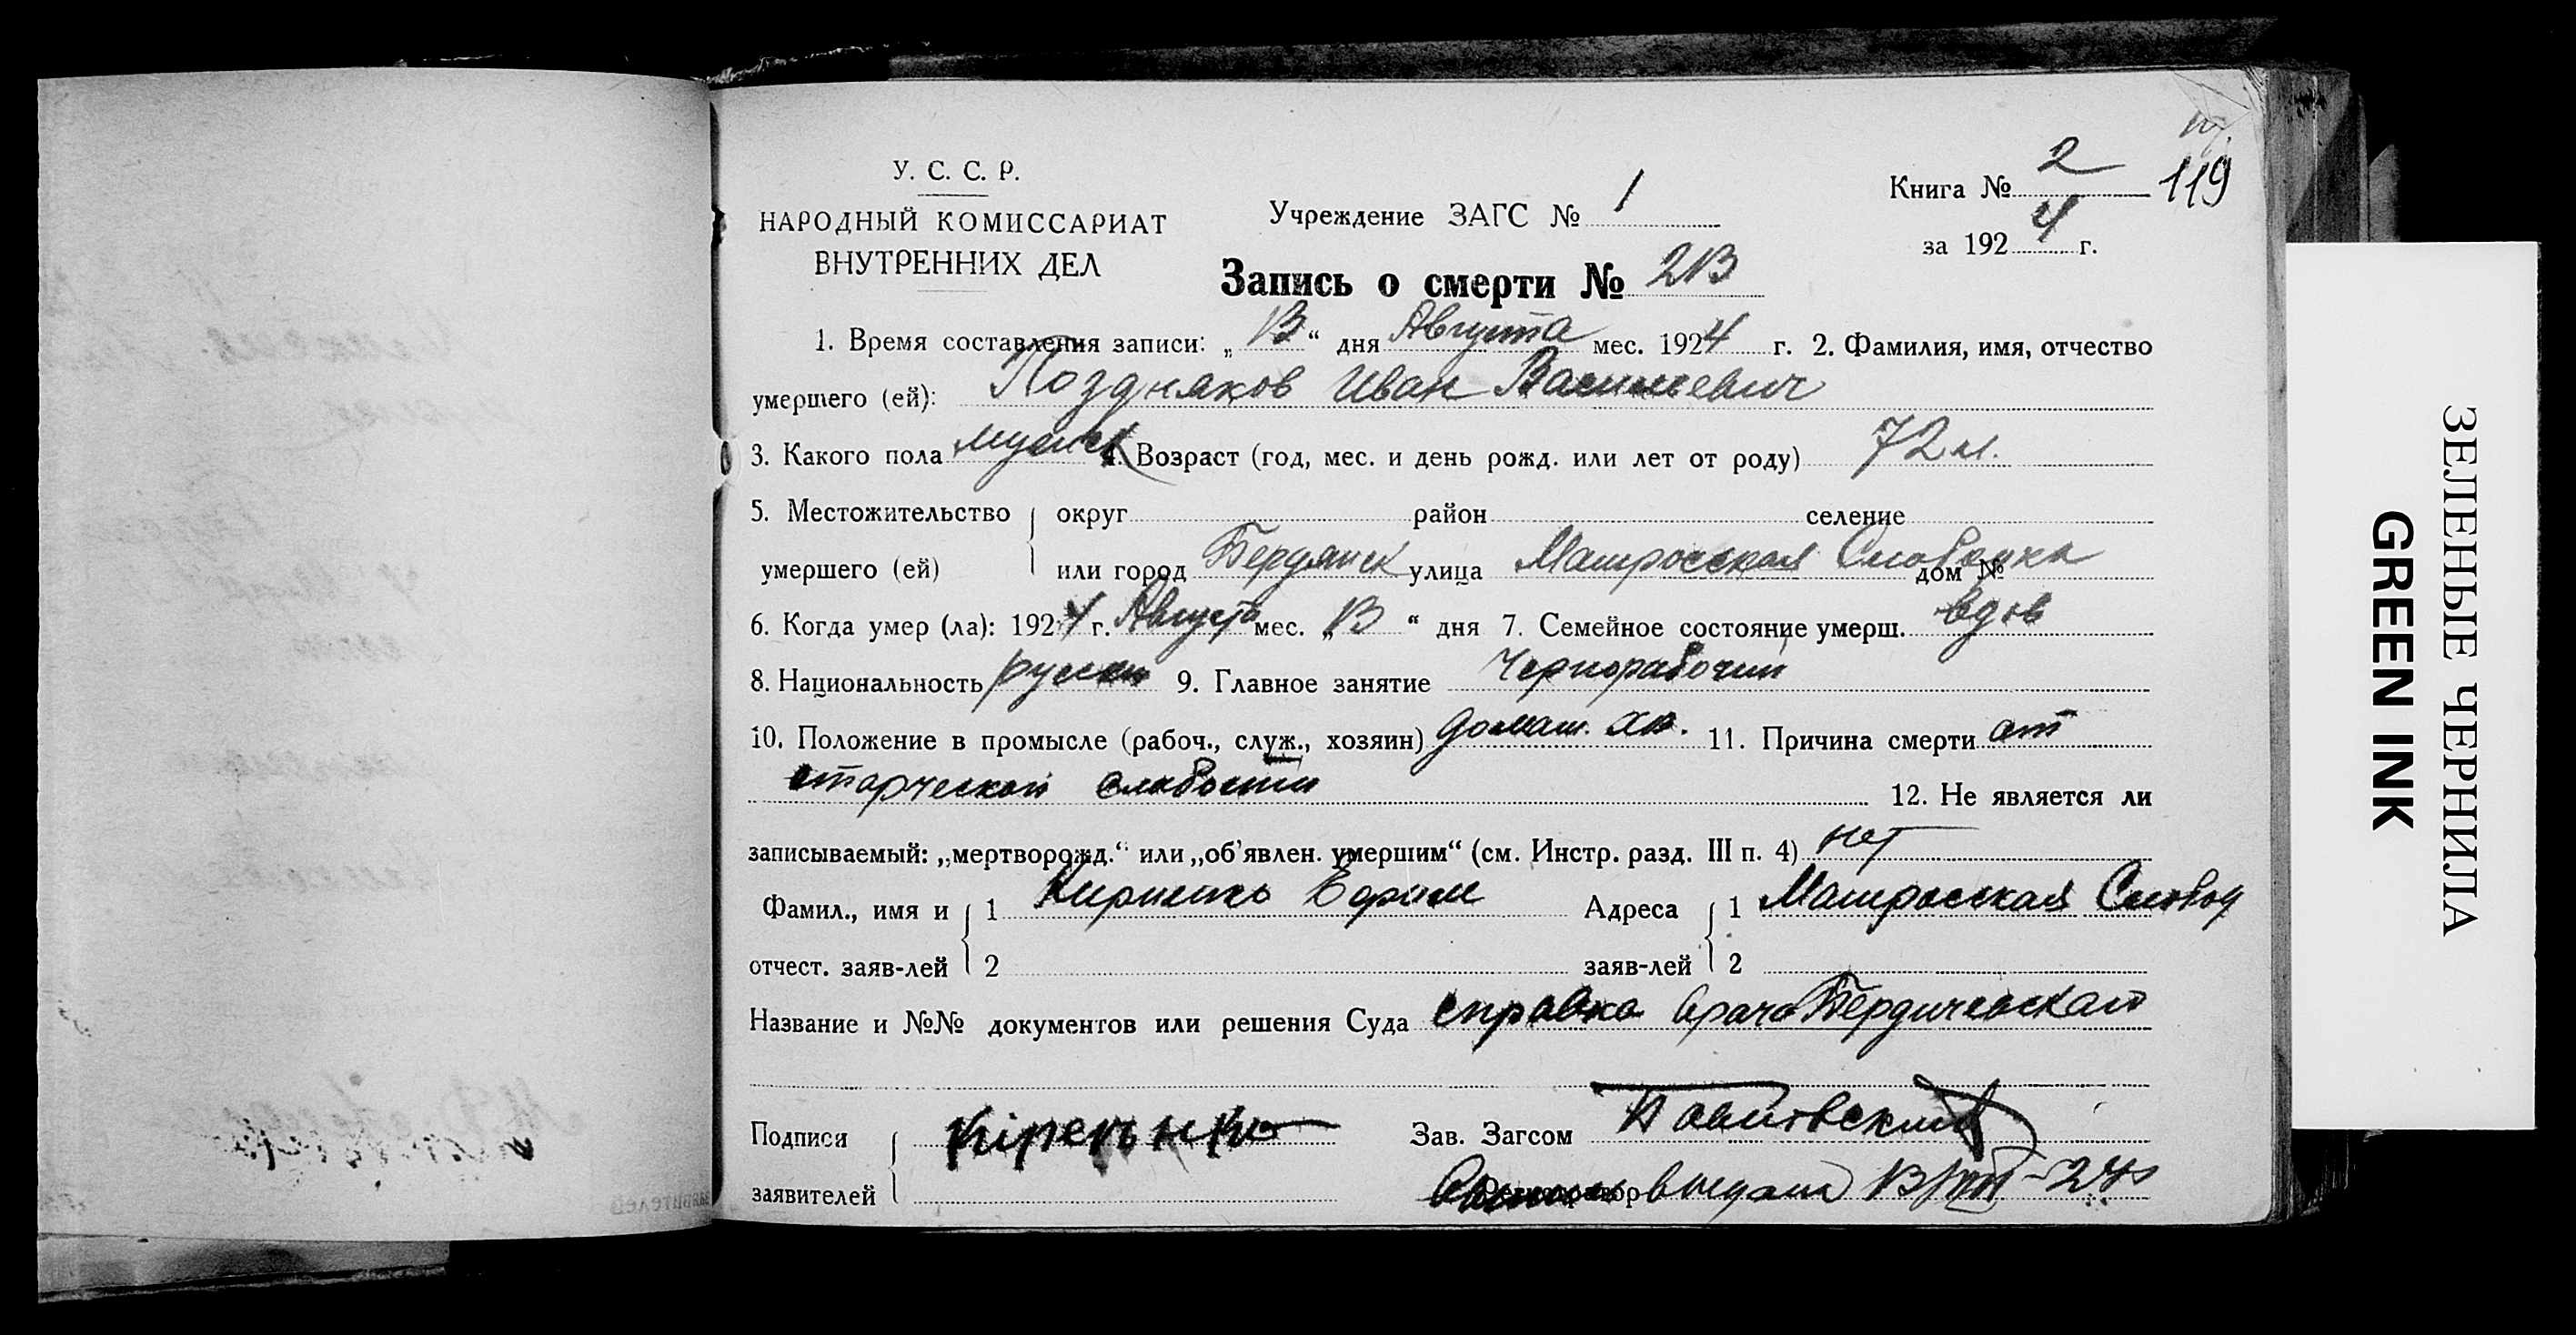 119
У. С. С. Р.
НАРОДНЫЙ КОМИССАРИАТ
ВНУТРЕННИХ ДЕЛ
Учреждение ЗАГС № 1
Книга № 2
за 1924 г.
Запись о смерти № 213
1. Время составления записи: „ 13 “ дня Августа мес. 1924 г. 2. Фамилия, имя, отчество
умершего (ей): Поздняков Иван Васильевич
3. Какого пола мужск 4. Возраст (год, мес. и день рожд. или лет от роду) 72 л.
5. Местожительство округ район селение
умершего (ей) или город Бердянск улица Матросская Слободка дом №
6. Когда умер (ла): 1924 г. Августа мес. „ 13 “ дня 7. Семейное состояние умерш. вдов
8. Национальность русский 9. Главное занятие Чернорабочий
10. Положение в промысле (рабоч., служ., хозяин) домаш. хоз. 11. Причина смерти от
старческой слабости 12. Не является ли
записываемый: „мертворожд.“ или „об'явлен. умершим“ (см. Инстр. разд. III п. 4) нет
Фамил., имя и 1 Адреса 1 Матросская Слобод
отчест. заяв-лей 2 заяв-лей 2
Название и №№ документов или решения Суда справка врача Бердичевского
Подписи Зав. Загсом
заявителей выдана 13/VIII-24г
ЗЕЛЕНЫЕ ЧЕРНИЛА
GREEN INK